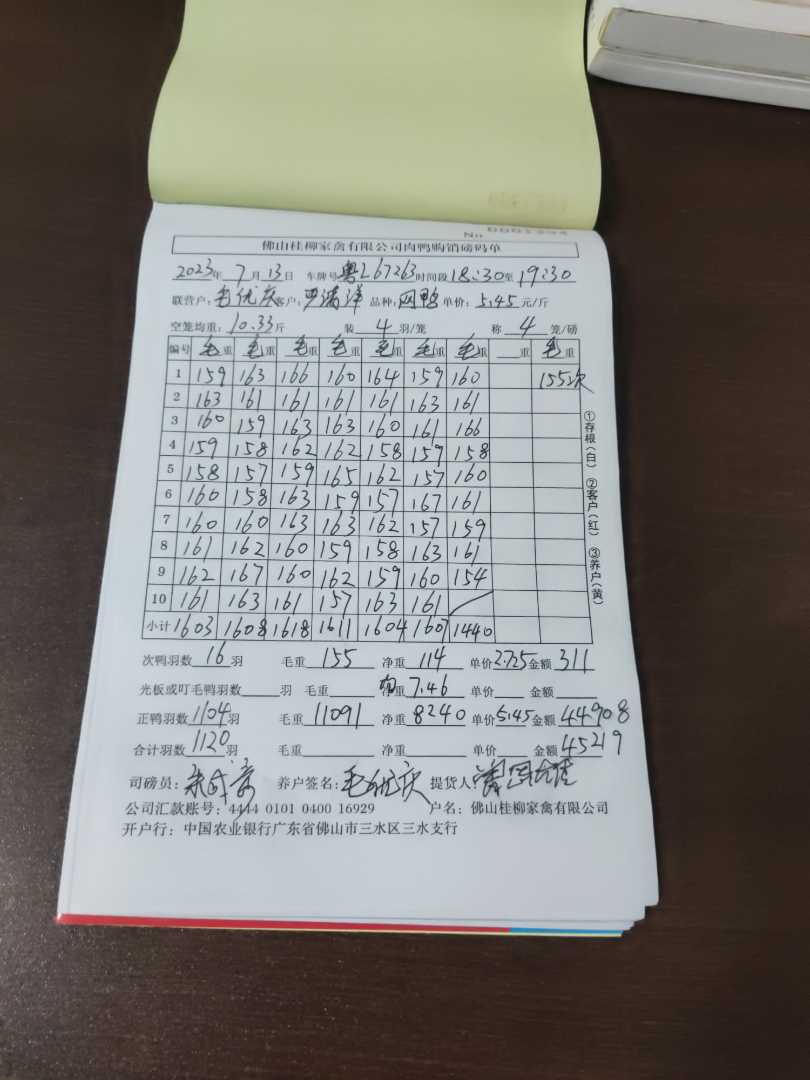 No 0001394
佛山桂柳家禽有限公司肉鸭购销磅码单
2023年 7月 13日 车牌号 粤L67263 时间段 18:30 至 19:30
联营户: 毛优庆 客户: 品种: 网鸭 单价: 5.45 元/斤
空笼均重: 10.33 斤 装 4 羽/笼 称 4 笼/磅
编号 毛重 毛重 毛重 毛重 毛重 毛重 毛重 重 毛重
1 159 163 166 160 164 159 160 155次
2 163 161 161 161 161 163 161
3 160 159 163 163 160 161 166
4 159 158 162 162 158 157 158
5 158 157 159 165 162 157 160
6 160 158 163 159 157 167 161
7 160 160 163 163 162 157 159
8 161 162 160 159 158 163 161
9 162 167 160 162 159 160 154
10 161 163 161 157 163 161
小计 1603 1608 1618 1611 1604 1607 1440
①存根(白) ②客户(红) ③养户(黄)
次鸭羽数 16 羽 毛重 155 净重 114 单价 2.725 金额 311
光板或叮毛鸭羽数 羽 毛重 均重 7.46 单价 金额
正鸭羽数 1104 羽 毛重 11091 净重 8240 单价 5.45 金额 44908
合计羽数 1120 羽 毛重 净重 单价 金额 45219
司磅员: 养户签名: 毛优庆 提货人:
公司汇款账号: 4444 0101 0400 16929 户名: 佛山桂柳家禽有限公司
开户行: 中国农业银行广东省佛山市三水区三水支行